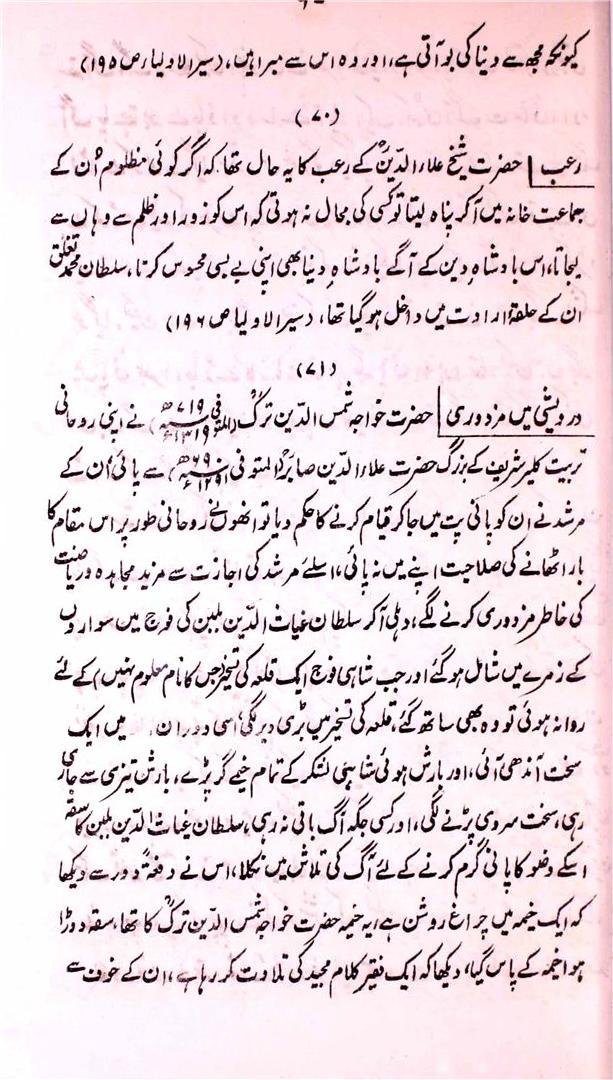 کیونکہ مجھ سے دنیا کی بو آتی ہے، اور وہ اس سے مبرا ہیں، (سیر الاولیا، ص ۱۹۵)
(۷۰)
رعب | حضرت شیخ علاء الدینؒ کے رعب کا یہ حال تھا کہ اگر کوئی مظلوم اُن کے
جماعت خانہ میں آکر پناہ لیتا تو کسی کی مجال نہ ہوتی کہ اس کو زور اور ظلم سے وہاں سے
لیجاتا، اس بادشاہِ دین کے آگے بادشاہِ دنیا بھی اپنی بے بسی محسوس کرتا، سلطان محمد تغلق
ان کے حلقۂ ارادت میں داخل ہوگیا تھا، (سیر الاولیا ص ۱۹۶)
(۷۱)
درویشی میں مزدوری | حضرت خواجہ شمس الدین ترکؒ (المتوفی ۷۱۹ھ ۱۳۱۹ء) نے اپنی روحانی
تربیت کلیر شریف کے بزرگ حضرت علاء الدین صابرؒ (المتوفی ۶۹۰ھ ۱۲۹۱ء) سے پائی، اُن کے
مرشد نے ان کو پانی پت میں جاکر قیام کرنے کا حکم دیا تو انھوں نے روحانی طور پر اس مقام کا
بار اٹھانے کی صلاحیت اپنے میں نہ پائی، اسلئے مرشد کی اجازت سے مزید مجاہدہ و ریاضت
کی خاطر مزدوری کرنے لگے، دہلی آکر سلطان غیاث الدین بلبن کی فوج میں سواروں
کے زمرے میں شامل ہوگئے اور جب شاہی فوج ایک قلعہ کی تسخیر (جس کا نام معلوم نہیں) کے لئے
روانہ ہوئی تو وہ بھی ساتھ گئے، قلعہ کی تسخیر میں بڑی دیر لگی، اسی دوران میں ایک
سخت آندھی آئی، اور بارش ہوئی شاہی لشکر کے تمام خیمے گر پڑے، بارش تیزی سے جاری
رہی، سخت سردی پڑنے لگی، اور کسی جگہ آگ باقی نہ رہی، سلطان غیاث الدین بلبن کا سقہ
اسکے وضو کا پانی گرم کرنے کے لئے آگ کی تلاش میں نکلا، اس نے دفعۃً دور سے دیکھا
کہ ایک خیمہ میں چراغ روشن ہے، یہ خیمہ حضرت خواجہ شمس الدین ترکؒ کا تھا، سقہ دوڑا
ہوا خیمہ کے پاس گیا، دیکھا کہ ایک فقیر کلام مجید کی تلاوت کر رہا ہے، ان کے خوف سے